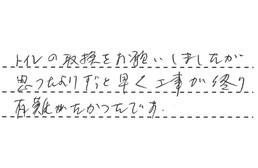 トイレの取換をお願いしましたが
思ったよりずっと早く工事が終り
有難かたかったです.